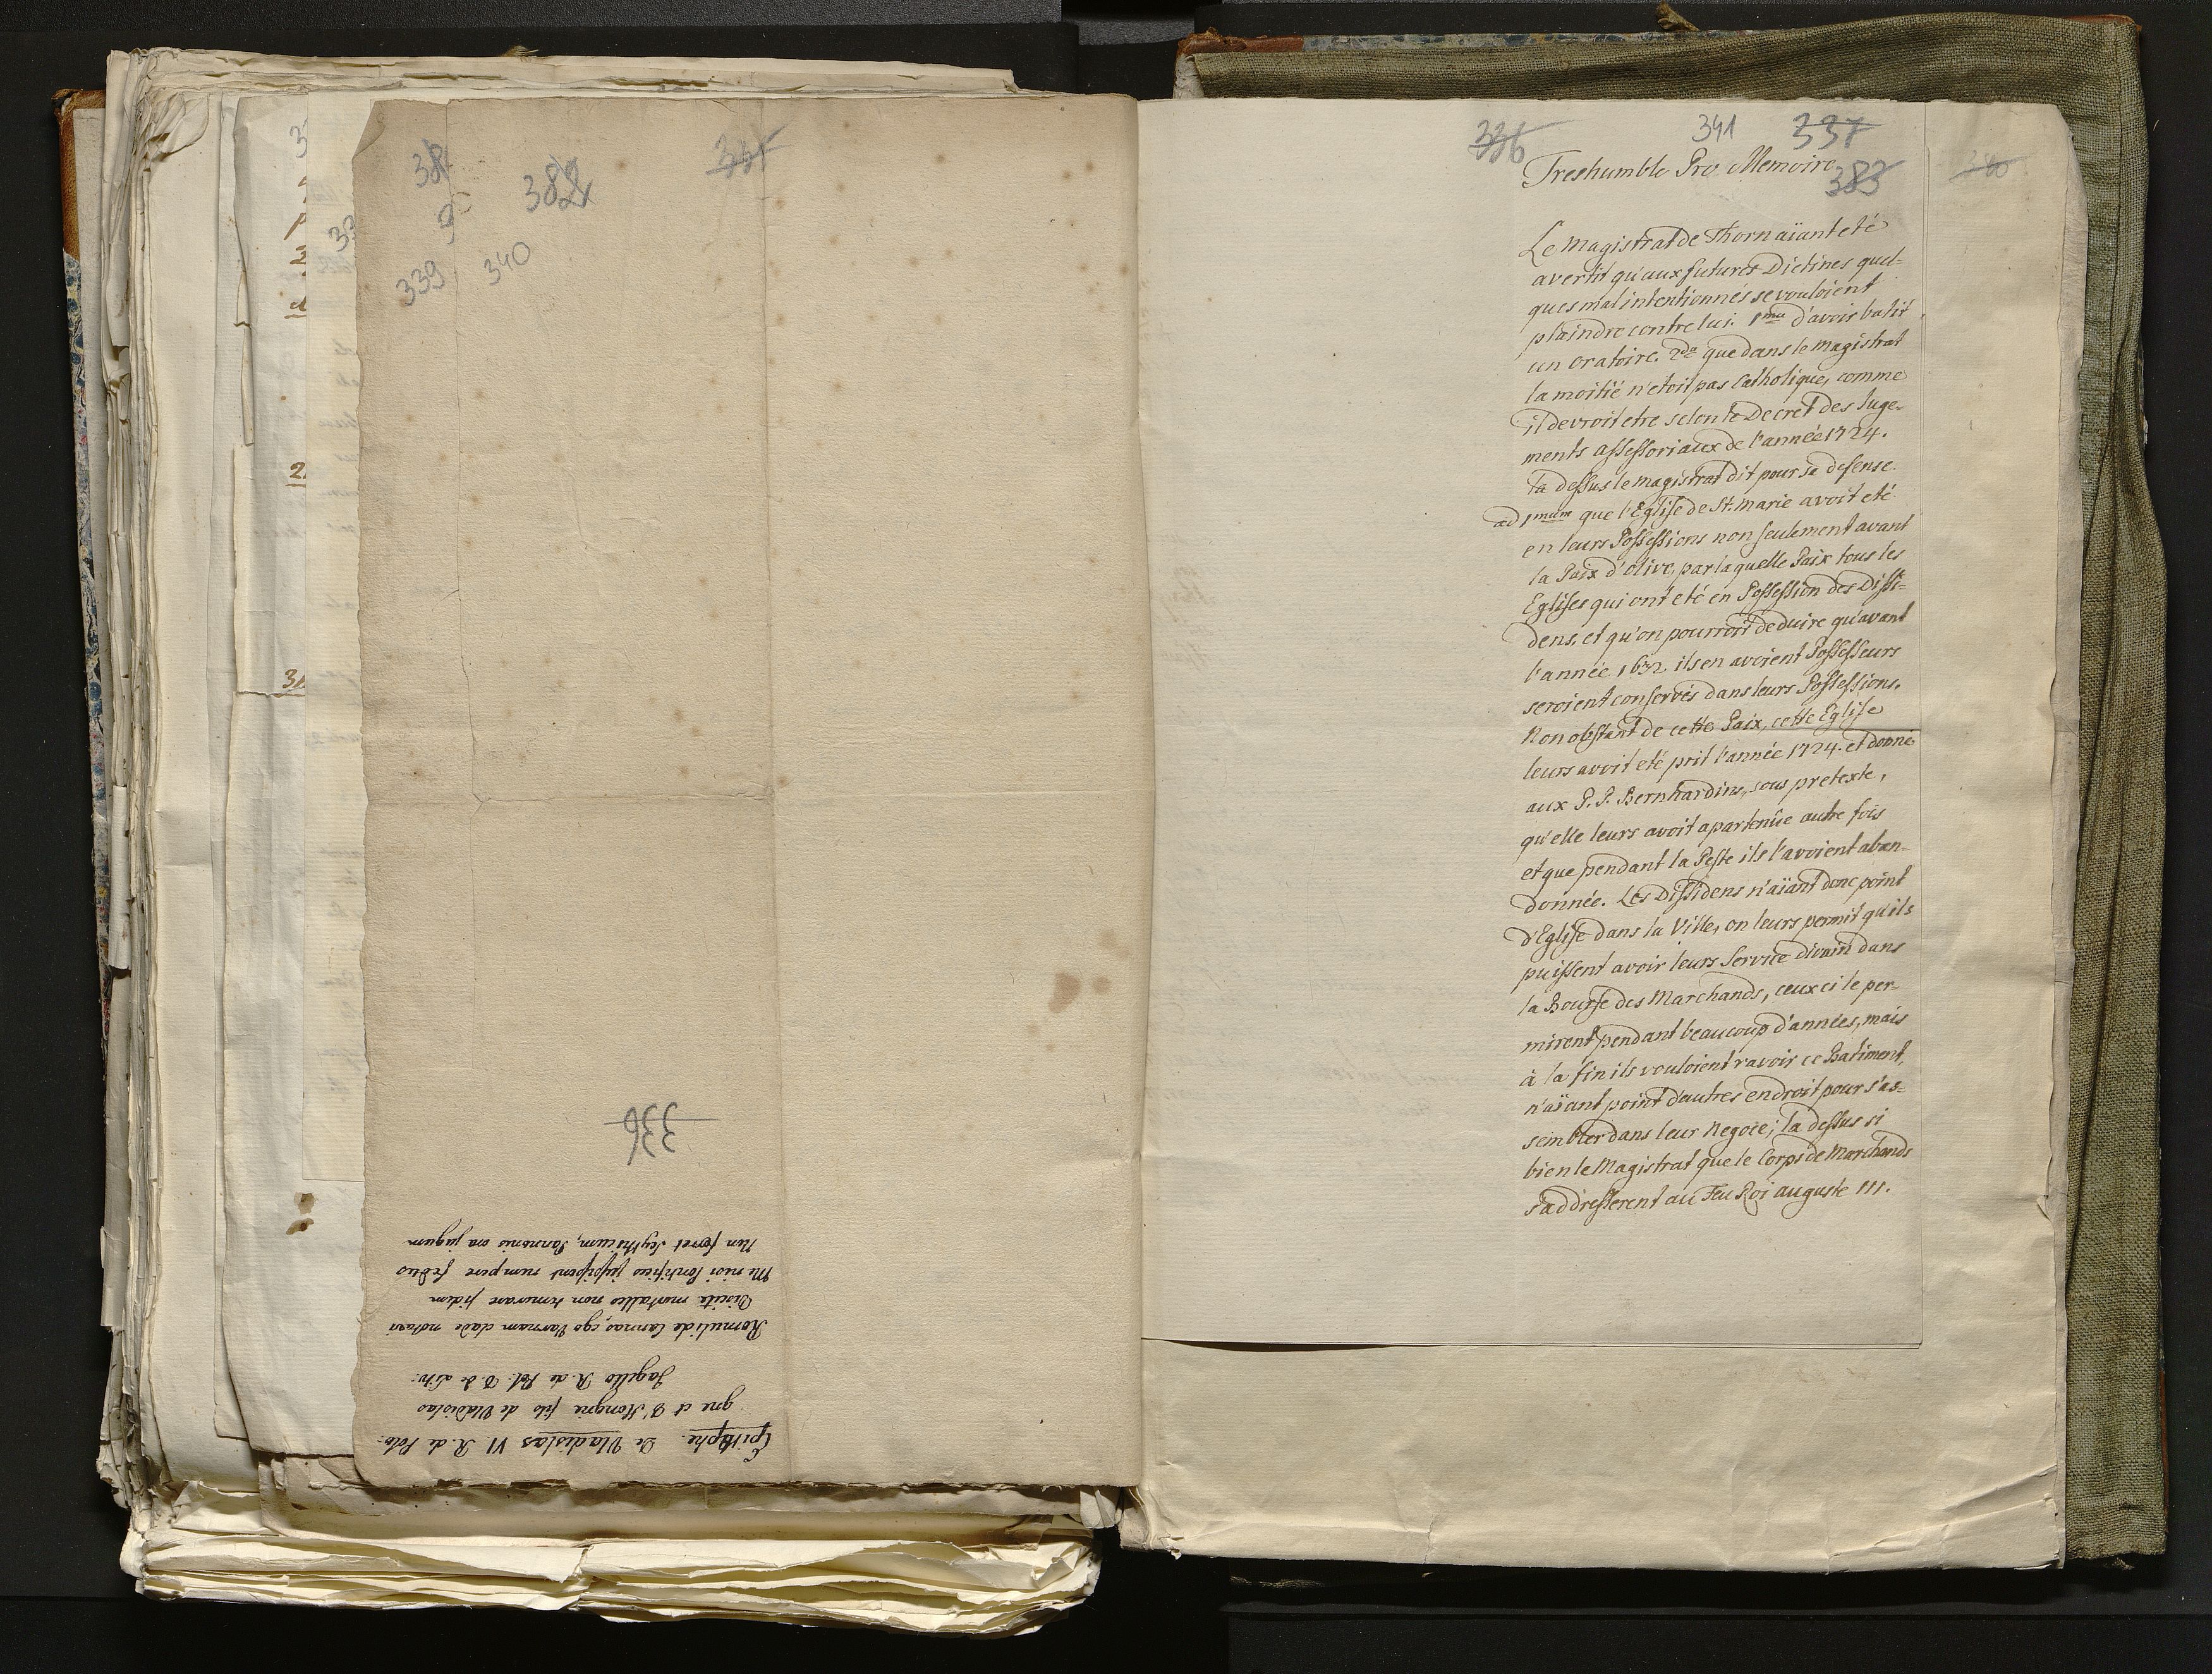 38
9
382
331
339
340
336
Epitaphe. De Vladislas VI R. de Polo-
gne et d'Hongrie fils de Vladislas
Jagello R. de Pol: D. de Litv:
Romulidæ Cannas, ego Varnam clade notavi
Discite mortalles non temerare fidem
Me nisi Pontifices jussissent rumpere fedus
Non ferret Scythicum, Pannonis ora jugum
336
341
337
383
340
Treshumble Pro Memoire
Le Magistrat de Thorn aïant eté
avertit qu'aux futures Dietines quel-
ques mal intentionnés se vouloient
plaindre contre lui. 1mu d'avoir batir
un oratoire. 2do que dans le magistrat
la moitié n'etoit pas Catholique, comme
il devroit etre selon le Decret des Juge-
ments assessoriaux de l'année 1724.
La dessus le magistrat dit pour sa defense.
ad 1mum que l'Eglise de St. Marie avoit eté
en leurs Possessions non seulement avant
la Paix d'olive, par laquelle Paix tous les
Eglises qui ont eté en Possession des Dissi-
dens, et qu'on pourroit deduire qu'avant
l'année 1632. ils en avoient Possesseurs
seroient conservés dans leurs Possessions.
Non obstant de cette Paix, cette Eglise
leurs avoit eté prit l'année 1724. et donné
aux P. P. Bernhardins, sous pretexte,
qu'elle leurs avoit apartenûe autre fois
et que pendant la Peste ils l'avoient aban-
donnée. Les Dissidens n'aïant donc point
d'Eglise dans la Ville, on leurs permit qu'ils
puissent avoir leurs Service divain dans
la Bourse des Marchands, ceux ci le per-
mirent pendant beaucoup d'années, mais
à la fin ils vouloient ravoir ce Batiment,
n'aïant point d'autres endroit pour s'as-
sembler dans leur Negoce; la dessus si
bien le Magistrat que le Corps de Marchands
s'addresserent au Feu Roi auguste III.